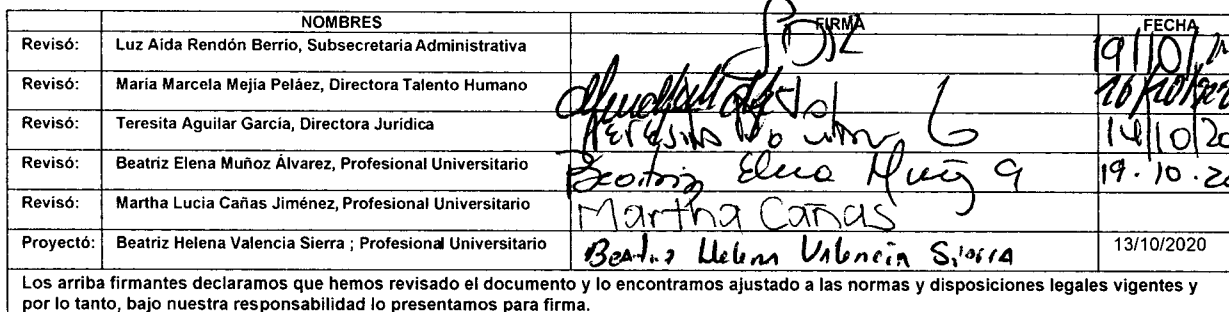 NOMBRES FIRMA FECHA
Revisó: Luz Aida Rendón Berrio, Subsecretaria Administrativa 19/10/
Revisó: María Marcela Mejía Peláez, Directora Talento Humano
Revisó: Teresita Aguilar García, Directora Jurídica Teresita 14/10/20
Revisó: Beatriz Elena Muñoz Álvarez, Profesional Universitario Beatriz Elena Muñoz A 19.10.20
Revisó: Martha Lucia Cañas Jiménez, Profesional Universitario Martha Cañas
Proyectó: Beatriz Helena Valencia Sierra ; Profesional Universitario Beatriz Helena Valencia Sierra 13/10/2020
Los arriba firmantes declaramos que hemos revisado el documento y lo encontramos ajustado a las normas y disposiciones legales vigentes y
por lo tanto, bajo nuestra responsabilidad lo presentamos para firma.